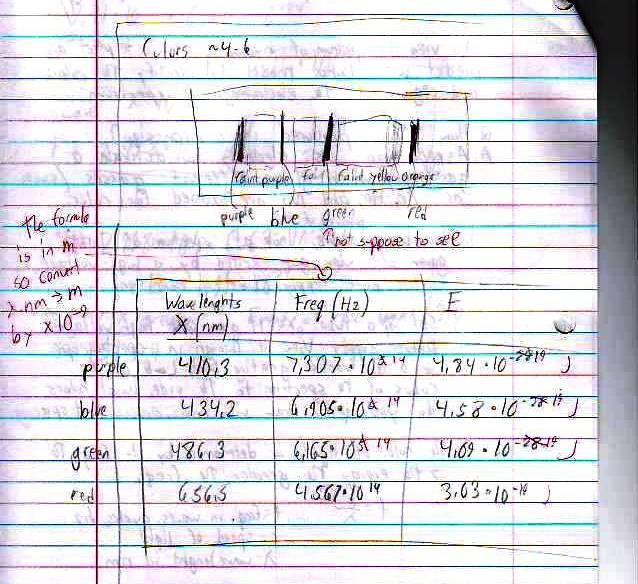 Colors ~4-6
faint purple to faint yellow orange
purple blue green red
↑not suppose to see
The formula
is in m
so convert
λ nm → m
by x10⁻⁹
Wavelenghts Freq (Hz) E
λ (nm)
purple 410.3 7.307·10¹⁴ 4.84·10⁻¹⁹ J
blue 434.2 6.905·10¹⁴ 4.58·10⁻¹⁹ J
green 486.3 6.165·10¹⁴ 4.09·10⁻¹⁹ J
red 656.5 4.567·10¹⁴ 3.03·10⁻¹⁹ J